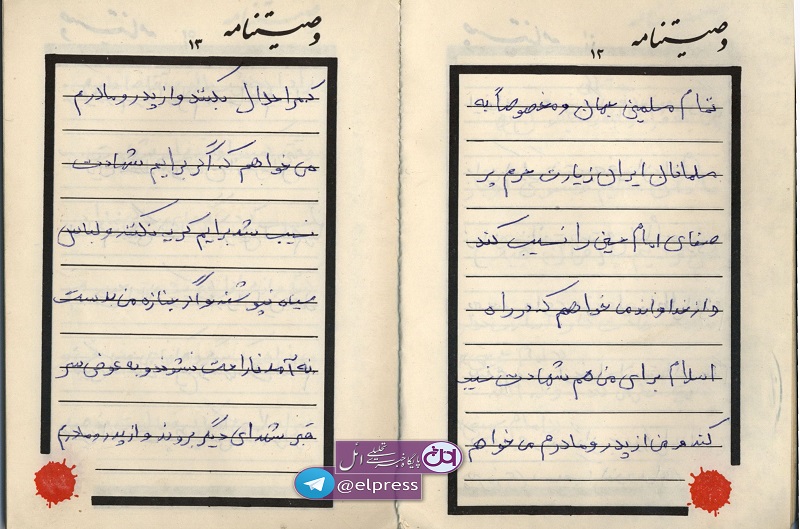 وصیتنامه
۱۲
تمام مسلمین جهان و مخصوصاً به
مسلمانان ایران زیارت حرم پر
صفای امام حسین را نسیب کند
و از خداوند می خواهم که در راه
اسلام برای من هم شهادت نسیب
کند و من از پدر و مادرم می خواهم
وصیتنامه
۱۳
که مرا حلال بکنند و از پدر و مادرم
می خواهم که اگر برایم شهادت
نسیب شد برایم گریه نکنند و لباس
سیاه نپوشند و اگر جنازه من بدست
نه آمد ناراحت نشوند و به عوض سر
قبر شهدای دیگر بروند و از پدر و مادرم
پایگاه خبری تحلیلی ائل
@elpress